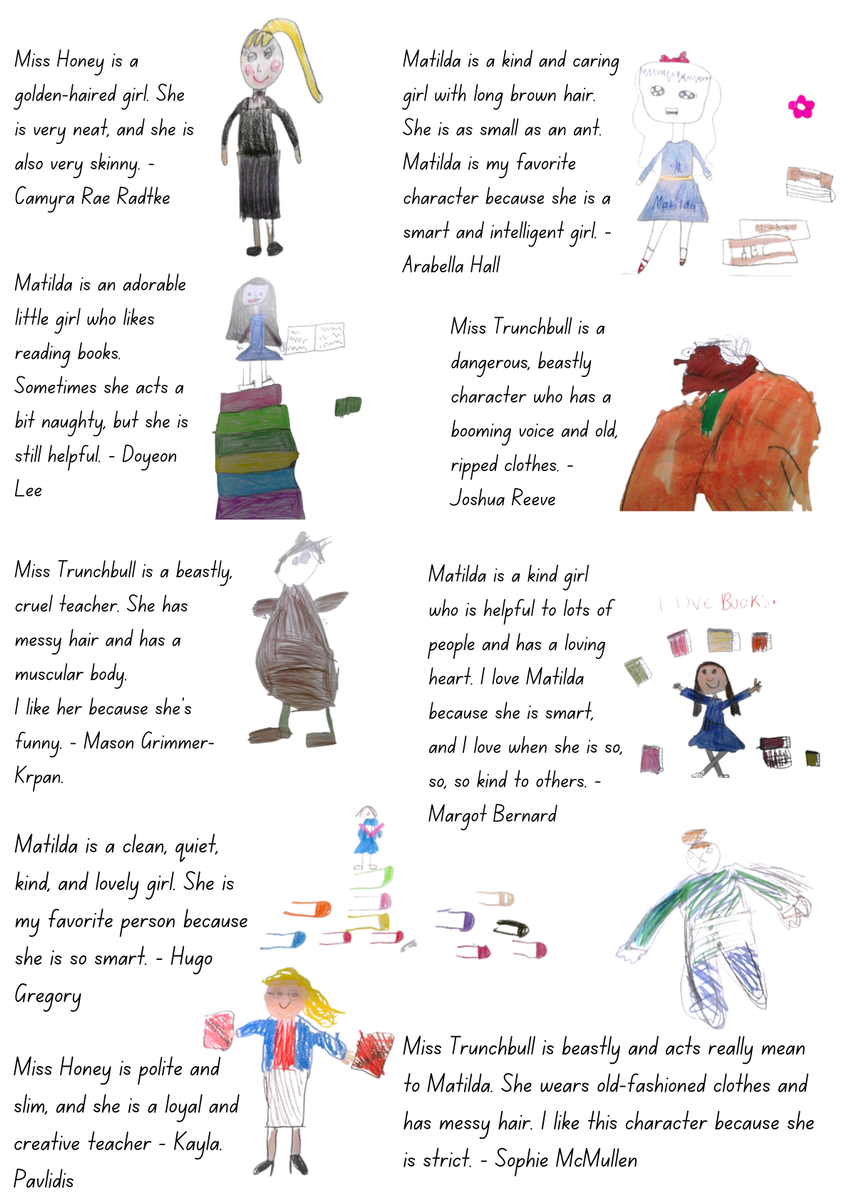 Miss Honey is a
golden-haired girl. She
is very neat, and she is
also very skinny. -
Camyra Rae Radtke
Matilda is a kind and caring
girl with long brown hair.
She is as small as an ant.
Matilda is my favorite
character because she is a
smart and intelligent girl. -
Arabella Hall
M
Matilda
ABC
Matilda is an adorable
little girl who likes
reading books.
Sometimes she acts a
bit naughty, but she is
still helpful. - Doyeon
Lee
Miss Trunchbull is a
dangerous, beastly
character who has a
booming voice and old,
ripped clothes. -
Joshua Reeve
Miss Trunchbull is a beastly,
cruel teacher. She has
messy hair and has a
muscular body.
I like her because she's
funny. - Mason Grimmer-
Krpan.
Matilda is a kind girl
who is helpful to lots of
people and has a loving
heart. I love Matilda
because she is smart,
and I love when she is so,
so, so kind to others. -
Margot Bernard
I love Books.
Matilda is a clean, quiet,
kind, and lovely girl. She is
my favorite person because
she is so smart. - Hugo
Gregory
Miss Honey is polite and
slim, and she is a loyal and
creative teacher - Kayla.
Pavlidis
Miss Trunchbull is beastly and acts really mean
to Matilda. She wears old-fashioned clothes and
has messy hair. I like this character because she
is strict. - Sophie McMullen